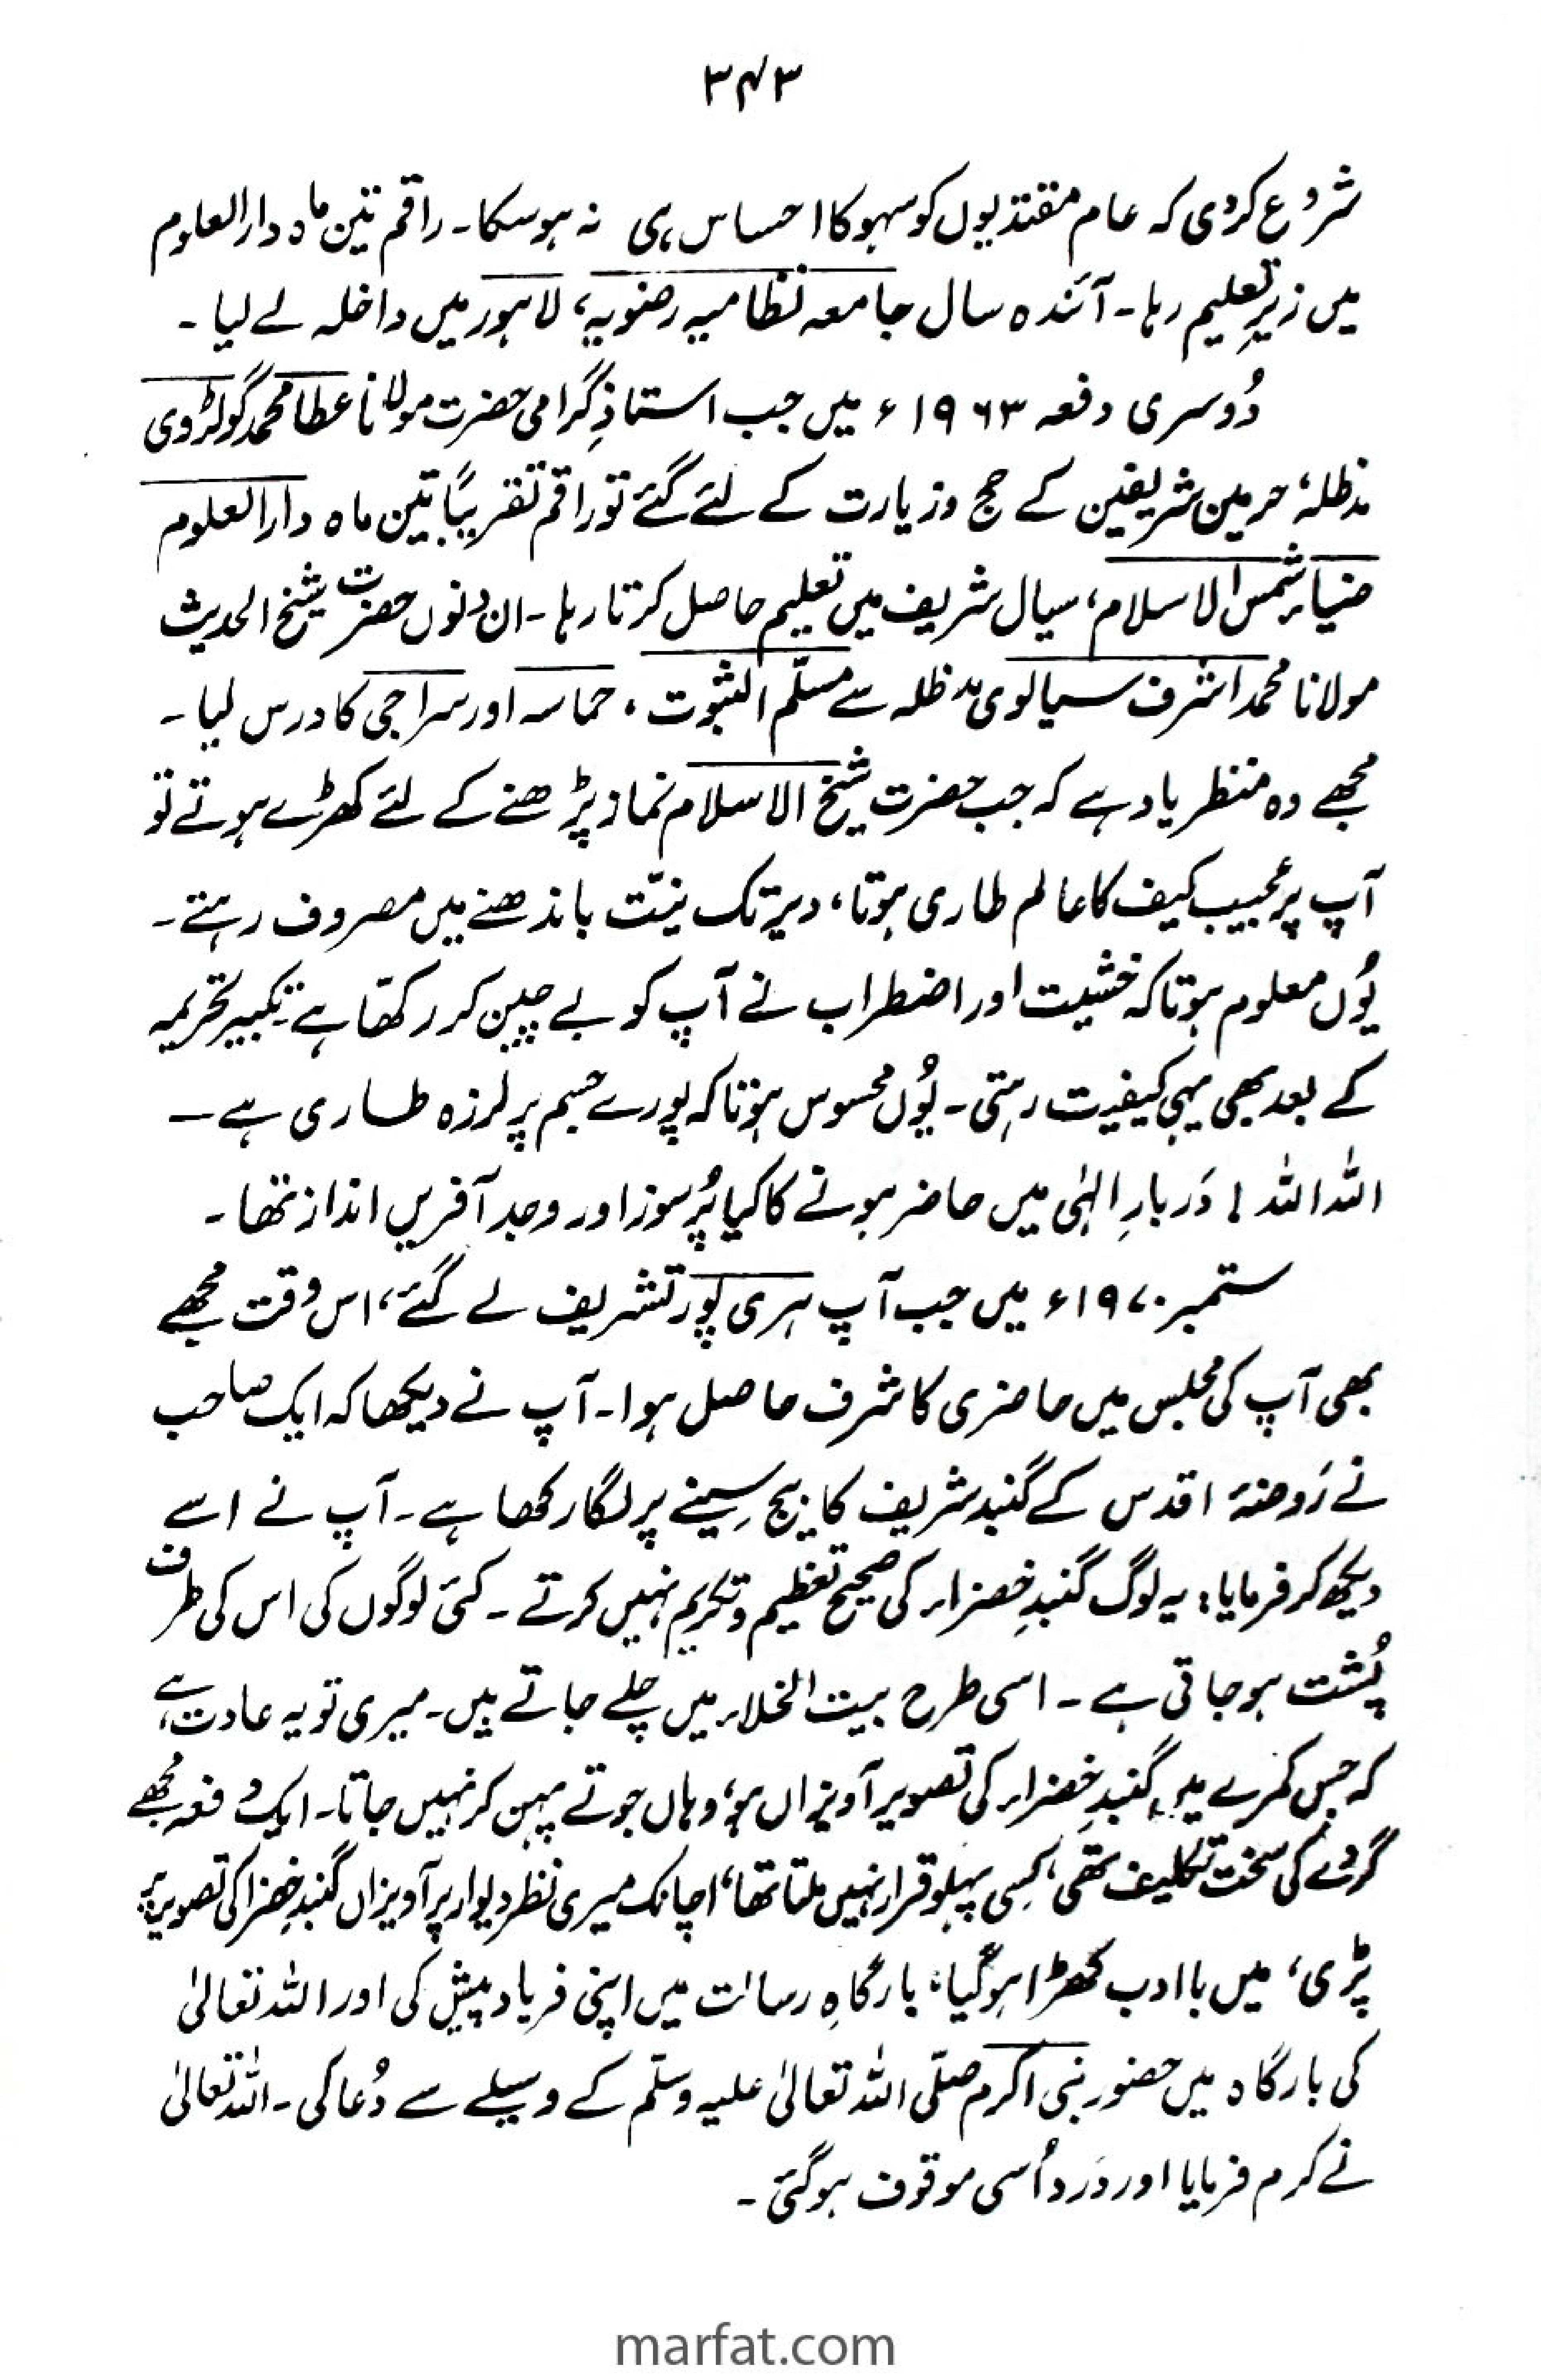 ۳۴۳
شروع کر دی کہ عام مقتدیوں کو سہو کا احساس ہی نہ ہو سکا۔ راقم تین ماہ دارالعلوم
میں زیرِ تعلیم رہا۔ آئندہ سال جامعہ نظامیہ رضویہ، لاہور میں داخلہ لے لیا۔
دُوسری دفعہ ۱۹۶۳ء میں جب استاذِ گرامی حضرت مولانا عطا محمد گولڑوی
مدظلہٗ حرمین شریفین کے حج و زیارت کے لئے گئے تو راقم تقریباً تین ماہ دارالعلوم
ضیاء شمس الاسلام، سیال شریف میں تعلیم حاصل کرتا رہا۔ ان دنوں حضرت شیخ الحدیث
مولانا محمد اشرف سیالوی مدظلہ سے مسلّم الثبوت، حماسہ اور سراجی کا درس لیا۔
مجھے وہ منظر یاد ہے کہ جب حضرت شیخ الاسلام نماز پڑھنے کے لئے کھڑے ہوتے تو
آپ پر عجیب کیف کا عالم طاری ہوتا، دیر تک نیّت باندھنے میں مصروف رہتے۔
یُوں معلوم ہوتا کہ خشیت اور اضطراب نے آپ کو بے چین کر رکھّا ہے۔ تکبیر تحریمہ
کے بعد بھی یہی کیفیت رہتی۔ یُوں محسوس ہوتا کہ پورے جسم پر لرزہ طاری ہے —
اللہ اللہ! دَربارِ الہٰی میں حاضر ہونے کا کیا پُرسوز اور وجد آفریں انداز تھا۔
ستمبر ۱۹۷۰ء میں جب آپ ہری پور تشریف لے گئے، اس وقت مجھے
بھی آپ کی مجلس میں حاضری کا شرف حاصل ہوا۔ آپ نے دیکھا کہ ایک صاحب
نے رَوضۂ اقدس کے گنبد شریف کا بیج سِینے پر لگا رکھا ہے۔ آپ نے اسے
دیکھ کر فرمایا: یہ لوگ گنبدِ خضراء کی صحیح تعظیم و تکریم نہیں کرتے۔ کئی لوگوں کی اس کی طرف
پُشت ہو جاتی ہے۔ اسی طرح بیت الخلاء میں چلے جاتے ہیں۔ میری تو یہ عادت ہے،
کہ جس کمرے میں گنبدِ خضراء کی تصویر آویزاں ہو، وہاں جوتے پہن کر نہیں جاتا۔ ایک دفعہ مُجھے
گردے کی سخت تکلیف تھی، کِسی پہلو قرار نہیں ملتا تھا، اچانک میری نظر دیوار پر آویزاں گنبدِ خضرا کی تصویر پر
پڑی، میں باادب کھڑا ہو گیا، بارگاہِ رسالت میں اپنی فریاد پیش کی اور اللہ تعالیٰ
کی بارگاہ میں حضور نبی اکرم صلّی اللہ تعالیٰ علیہ وسلّم کے وسیلے سے دُعا کی۔ اللہ تعالیٰ
نے کرم فرمایا اور دَرد اُسی موقوف ہو گئی۔
marfat.com